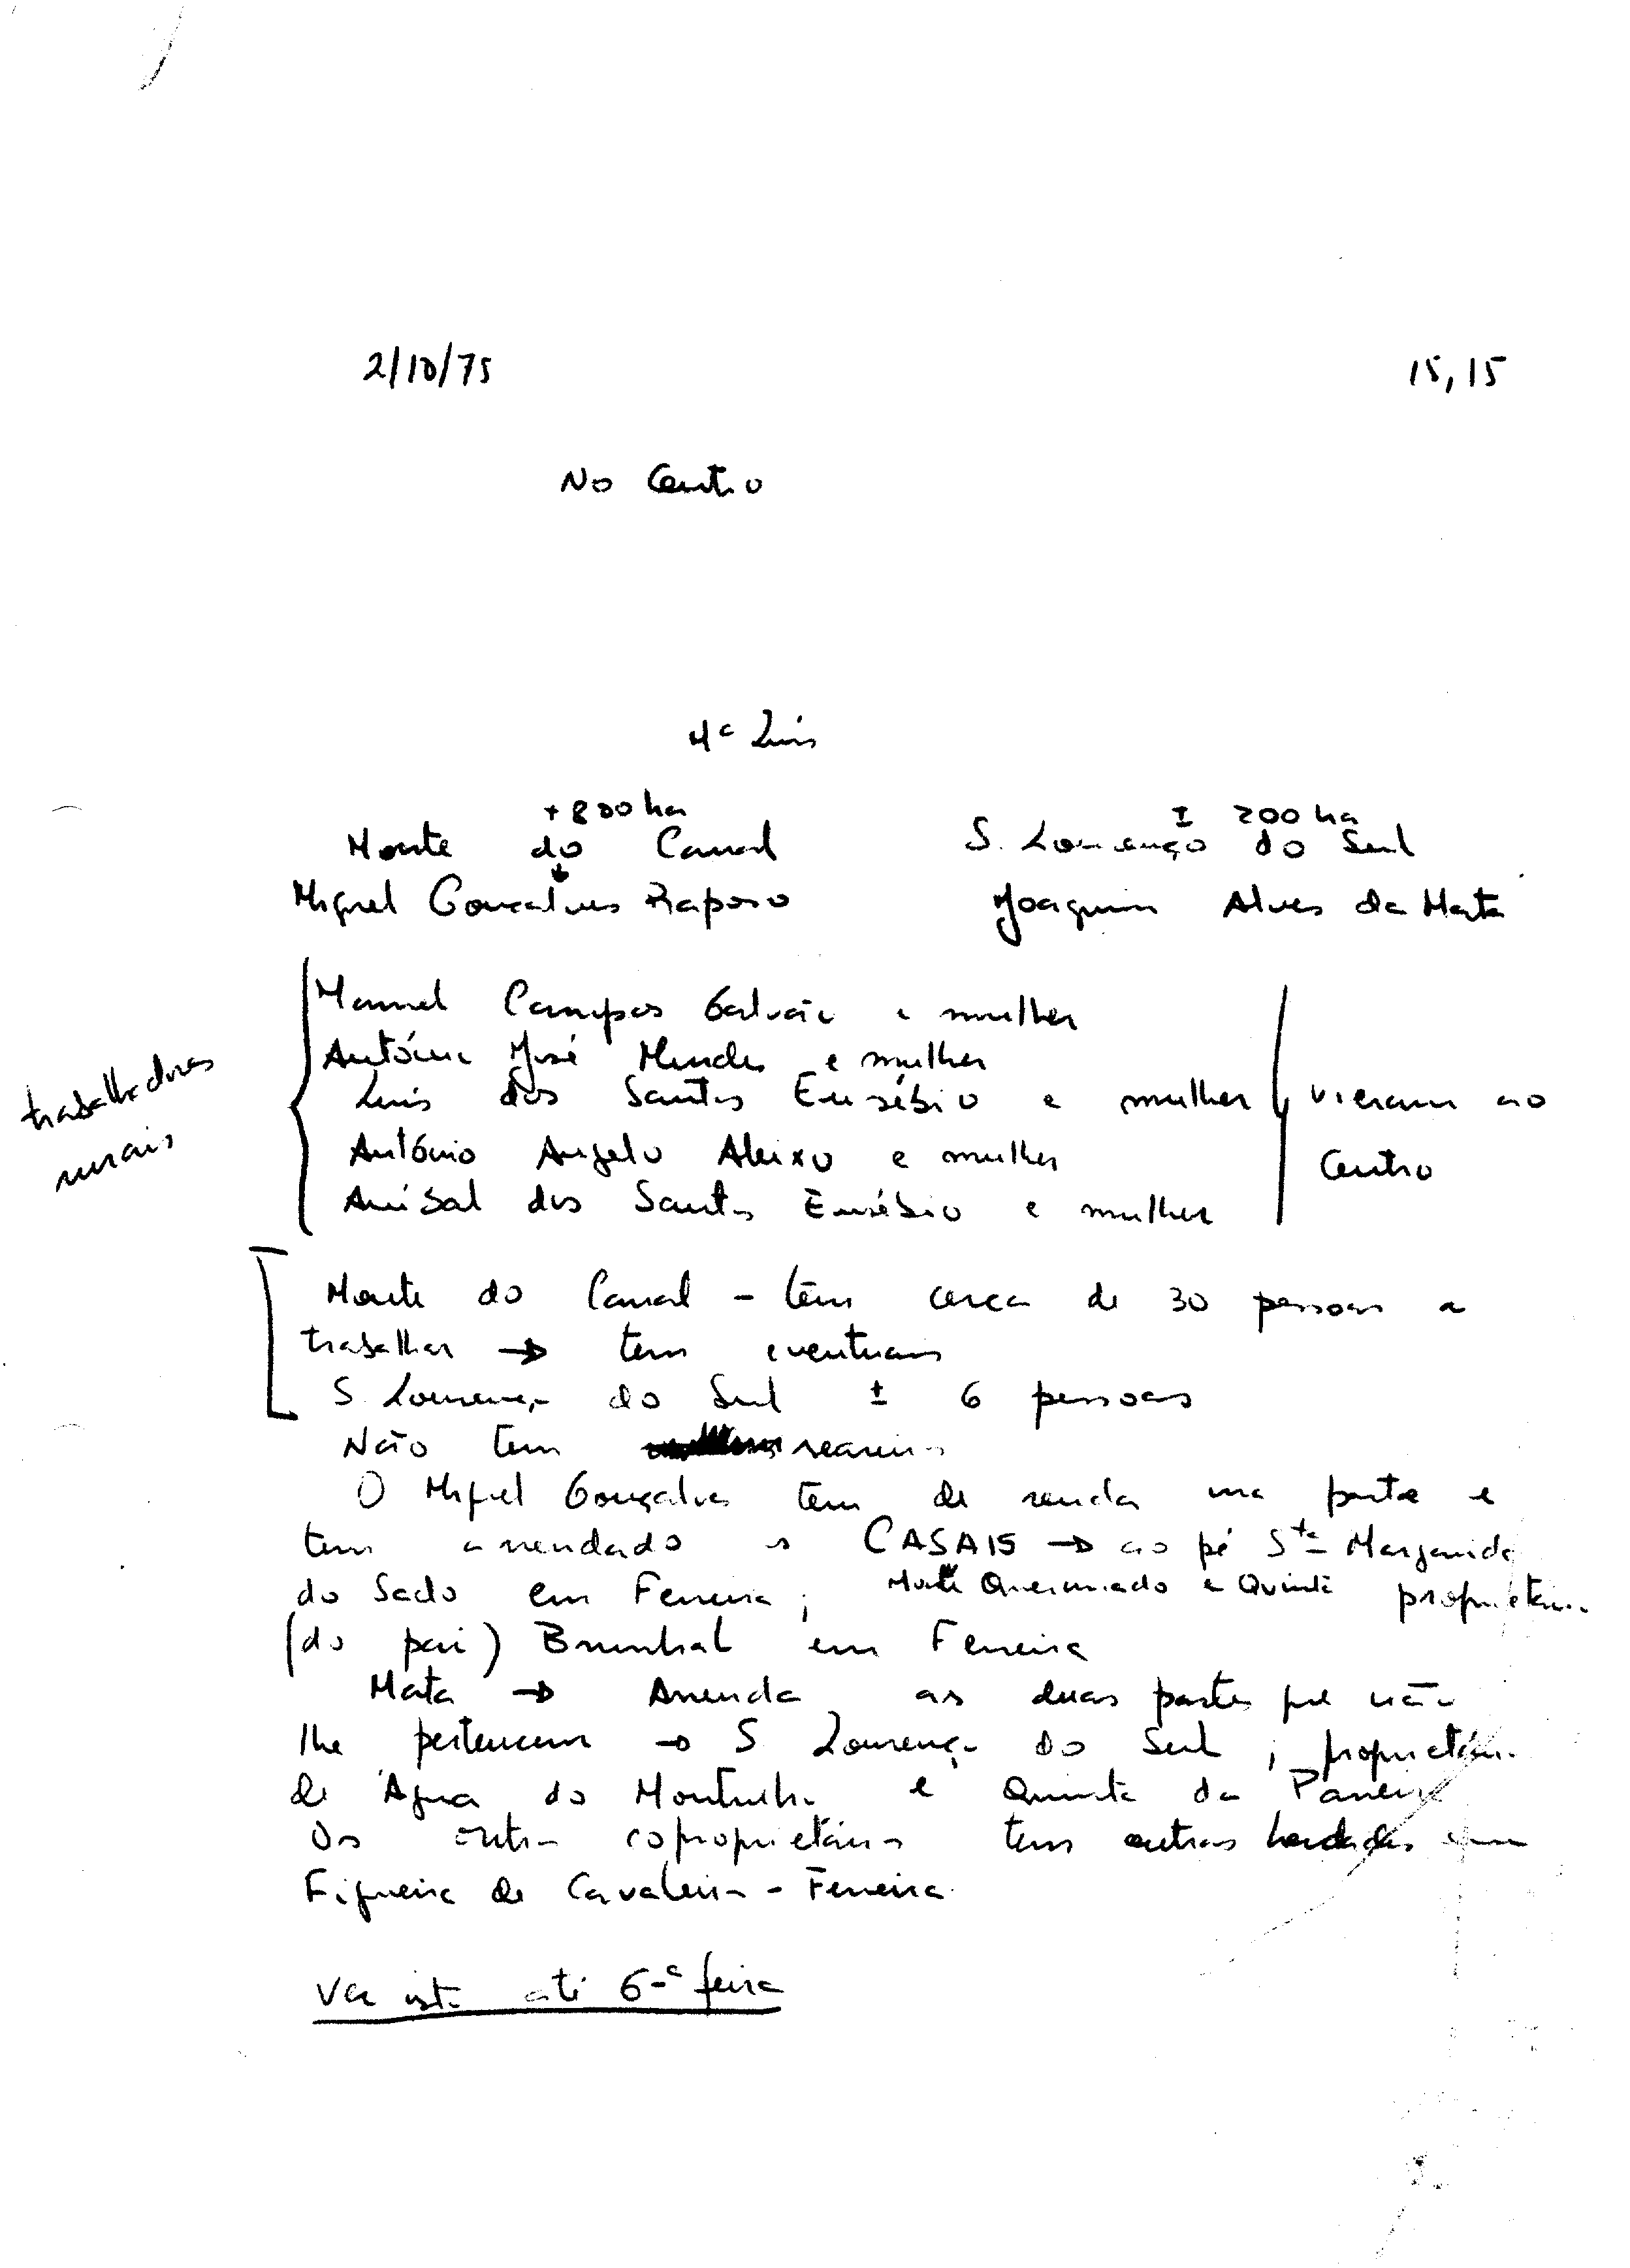 2/10/75 15,15
No Centro
Mª Luís
+ 800 ha ± 200 ha
Monte do Canal S. Lourenço do Sul
Miguel Gonçalves Raposo Joaquim Alves da Mata
Manuel Campos Galvão e mulher
António José Mendes e mulher
Luís dos Santos Eusébio e mulher vieram ao
António Angelo Aleixo e mulher Centro
Anibal dos Santos Eusébio e mulher
trabalhadores
rurais
Monte do Canal - têm cerca de 30 pessoas a
trabalhar → tem eventuais
S. Lourenço do Sul ± 6 pessoas
Não tem seareiros
O Miguel Gonçalves tem de renda uma parte e
tem arrendado os CASAIS → ao pé Sta Margarida
do Sado em Ferreira; Monte Queimado e Quinta proprietário
(do pai) Brunhal em Ferreira
Mata → Arrenda as duas partes que não
lhe pertencem → S Lourenço do Sul; proprietário
de Agua do Montinho e Quinta da
Os outros coproprietários tem outras herdades em
Figueira de Cavaleiros - Ferreira.
Ver isto até 6-ª feira